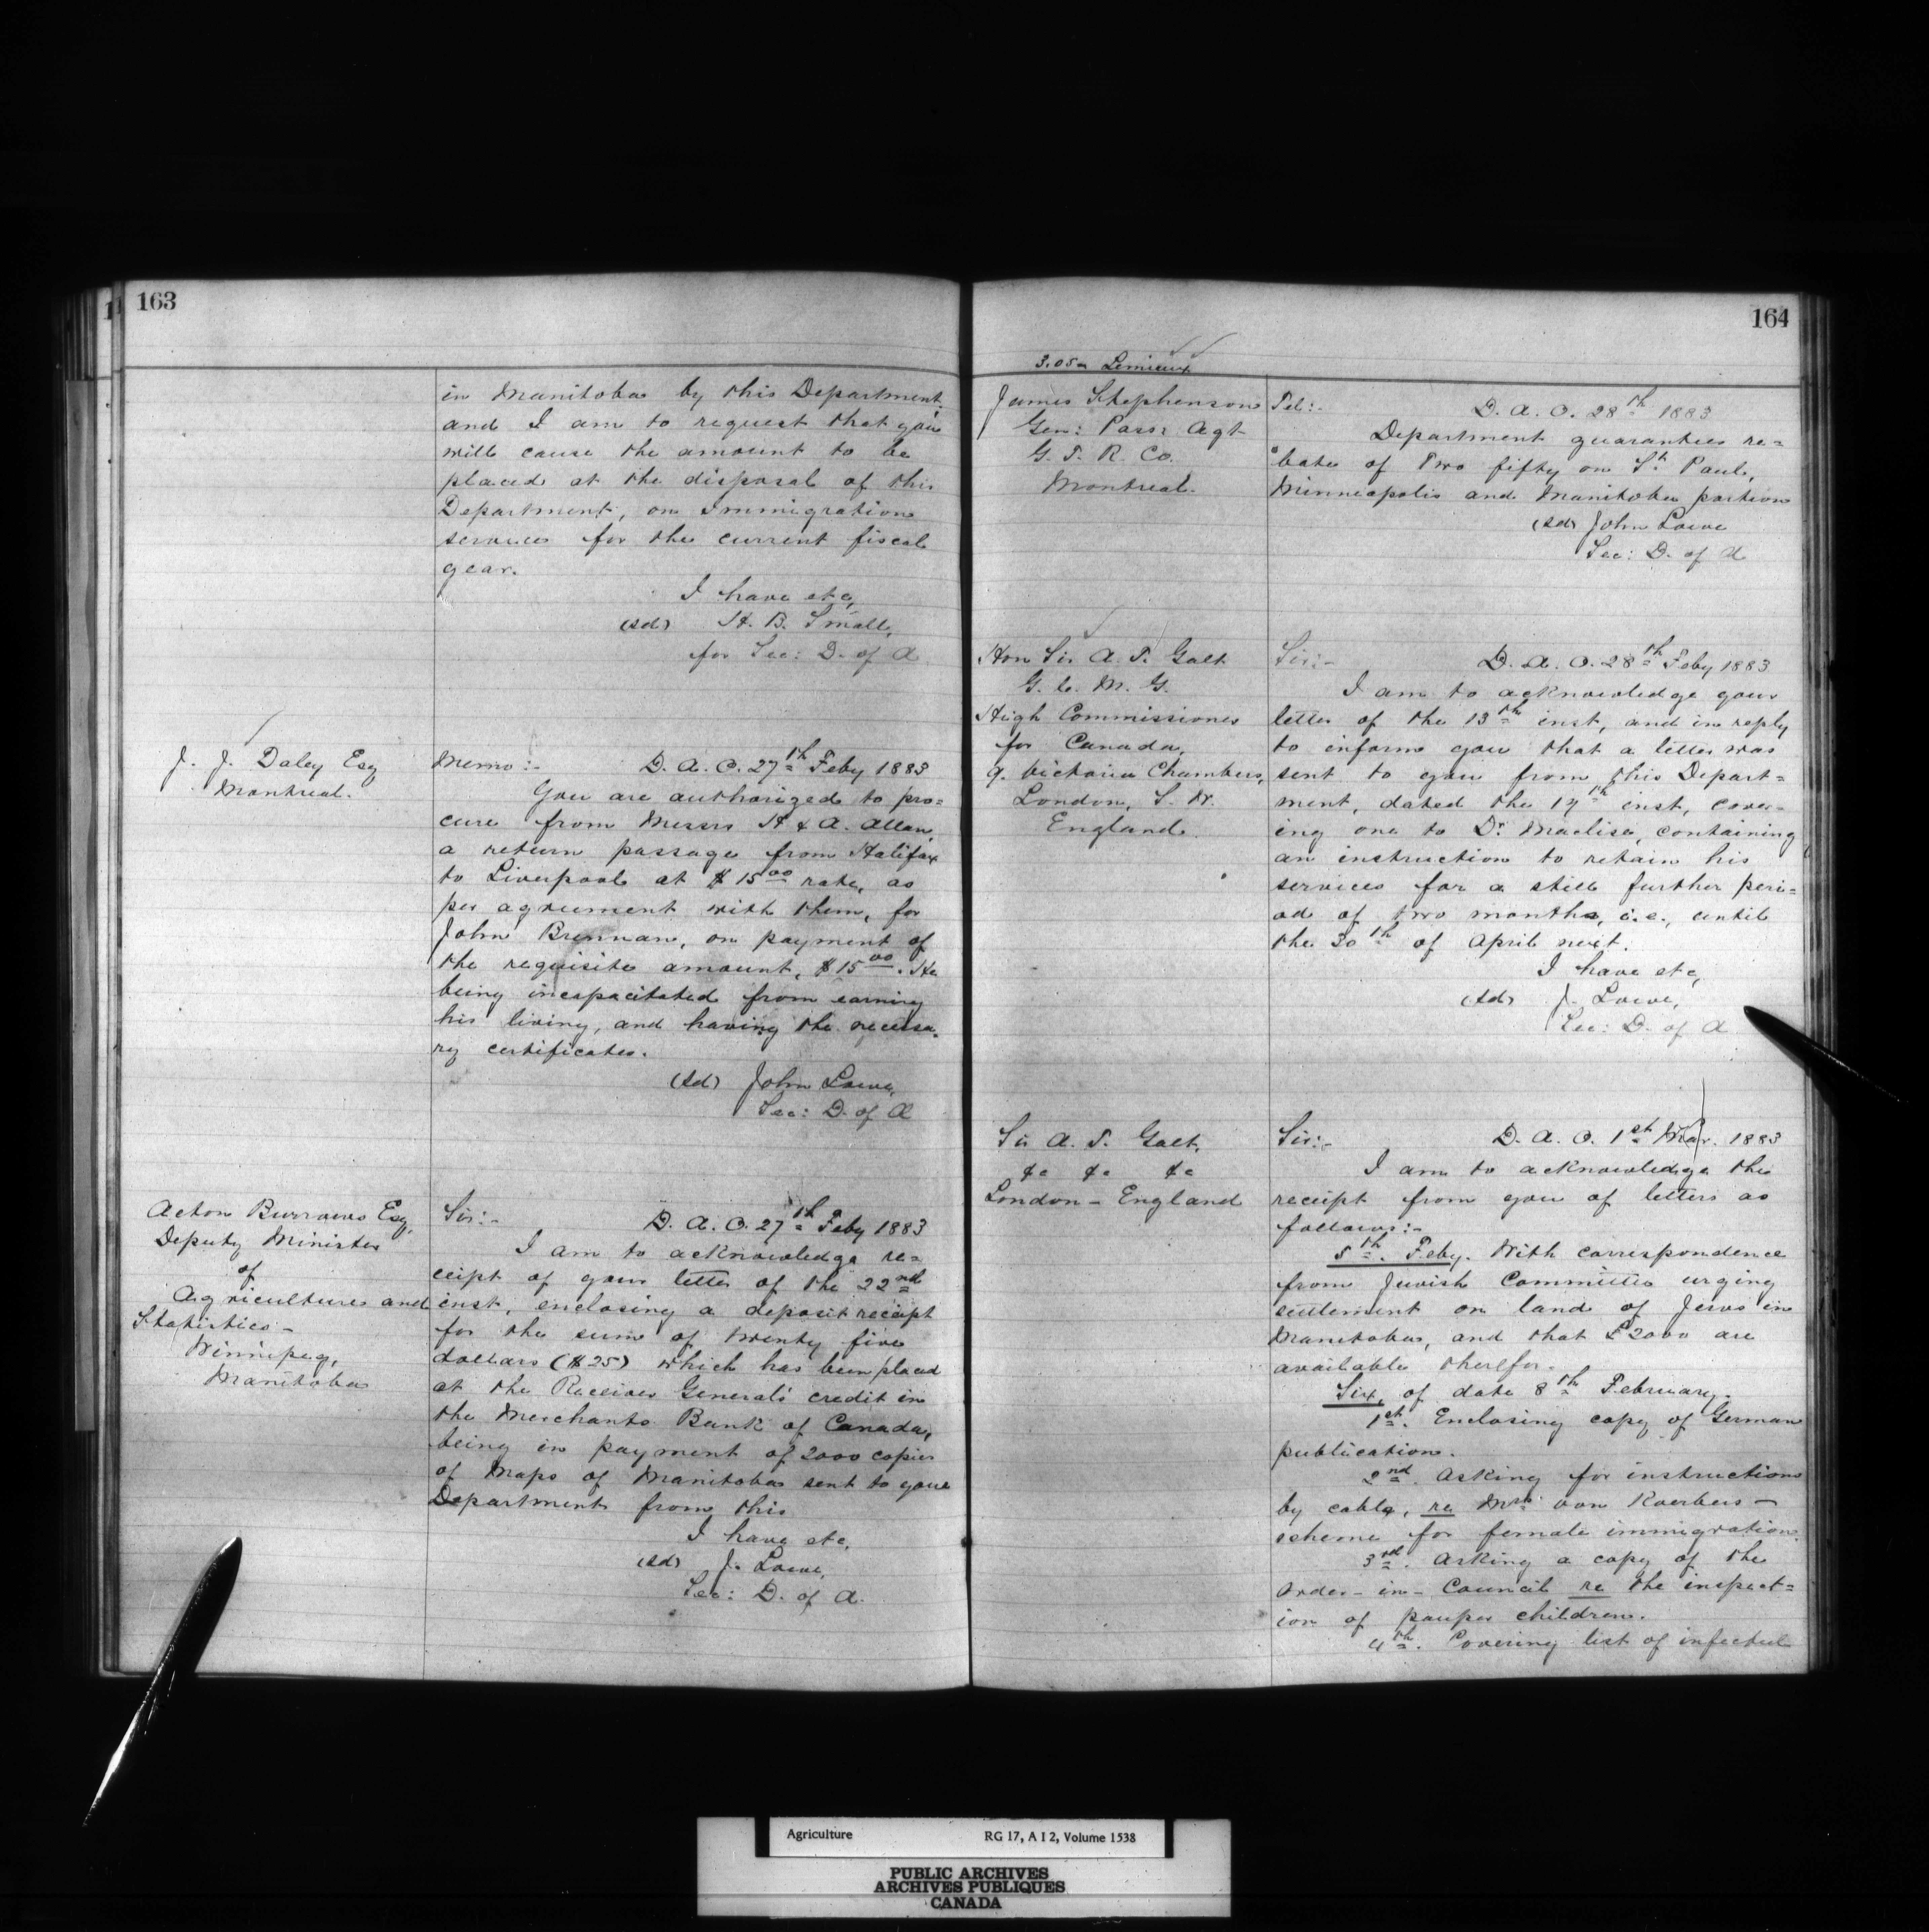 163
in Manitoba by this Department,
and I am to request that you
will cause the amount to be
placed at the disposal of this
Department, on Immigration
services for the current fiscal
year.
I have etc,
(sd) H. B. Small,
for Sec: D. of A
J. J. Daley Esq
Montreal.
Memo:- D. A. O. 27th Feby 1883
You are authorized to pro=
cure from Messrs H & A. Allan,
a return passage from Halifax
to Liverpool at $15.00 rate, as
per agreement with them, for
John Brennan, on payment of
the requisite amount, $15.00. He
being incapacitated from earning
his living, and having the necessa-
ry certificates.
(sd) John Lowe,
Sec: D. of A
Acton Burrows Esq,
Deputy Minister
of
Agriculture and
Statistics-
Winnipeg,
Manitoba
Sir:- D. A. O. 27th Feby 1883
I am to acknowledge re=
ceipt of your letter of the 22nd
inst, enclosing a deposit receipt
for the sum of twenty five
dollars ($25) which has been placed
at the Receiver General's credit in
the Merchants Bank of Canada,
being in payment of 2000 copies
of Maps of Manitoba sent to your
Department from this
I have etc,
(sd) J. Lowe,
Sec: D. of A.
164
3.05a Lemieux
James Stephenson
Gen: Passr Agt
G. T. R. Co.
Montreal.
Tel:- D. A. O. 28th 1883
Department guarantees re=
bate of Two fifty on St. Paul,
Minneapolis and Manitoba portion
(sd) John Lowe
Sec: D. of A
Hon Sir A. T. Galt
G. C. M. G.
High Commissioner
for Canada,
9. Victoria Chambers,
London, S. W.
England.
Sir:- D. A. O. 28th Feby 1883
I am to acknowledge your
letter of the 13th inst, and in reply
to inform you that a letter was
sent to you from this Depart=
ment, dated the 17th inst, cover-
ing one to Dr. Maclise, containing
an instruction to retain his
services for a still further peri=
od of two months, i.e., until
the 30th of April next.
I have etc,
(sd) J. Lowe,
Sec: D. of A
Sir A. T. Galt,
&c &c &c
London - England
Sir:- D. A. O. 1st Mar. 1883
I am to acknowledge the
receipt from you of letters as
follows:-
5th. Feby. With correspondence
from Jewish Committee urging
settlement on land of Jews in
Manitoba, and that £2000 are
available therefor.
Six, of date 8th February.
1st. Enclosing copy of German
publication.
2nd. Asking for instructions
by cable, re Mrs von Koerbers -
scheme for female immigration.
3rd. Asking a copy of the
Order-in-Council re the inspect=
ion of pauper children.
4th. Covering list of infected
Agriculture RG 17, A I 2, Volume 1538
PUBLIC ARCHIVES
ARCHIVES PUBLIQUES
CANADA